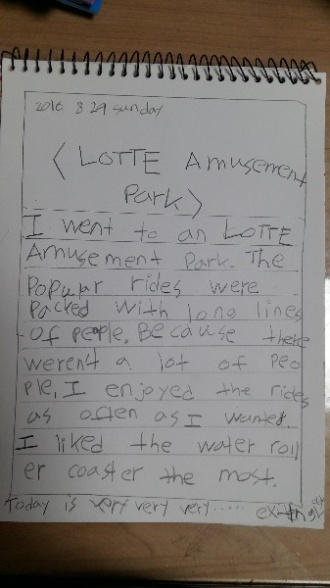 2016 8 29 sunday
< LOTTE Amusement
Park >
I went to an LOTTE
Amusement Park. The
Popular rides were
Packed with long lines
of people. Because there
weren't a lot of peo
ple, I enjoyed the rides
as often as I wanted.
I liked the water roll
er coaster the most.
Today is very very very.....